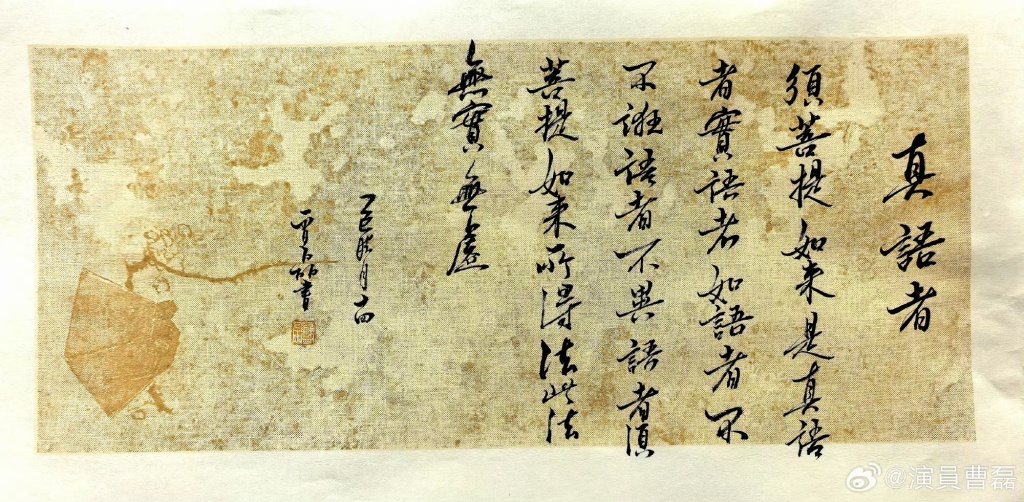 真語者
須菩提如来是真語
者實語者如語者不
不誑語者不異語者須
菩提如来所得法此法
無實無虛
乙巳腊月十四
書
@演員曹磊